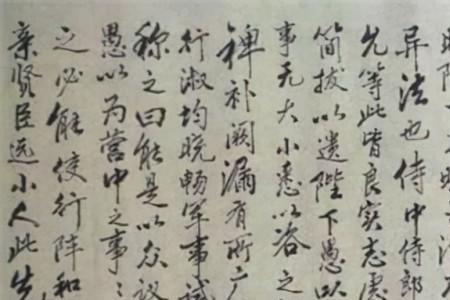 异法也侍中侍郎
允等此皆良实志虑
简拔以遗陛下愚以
事无大小悉以咨之
裨补阙漏有所广
行淑均晓畅军事试
称之曰能是以众议
愚以为营中之事
之必能使行阵和
亲贤臣远小人此先